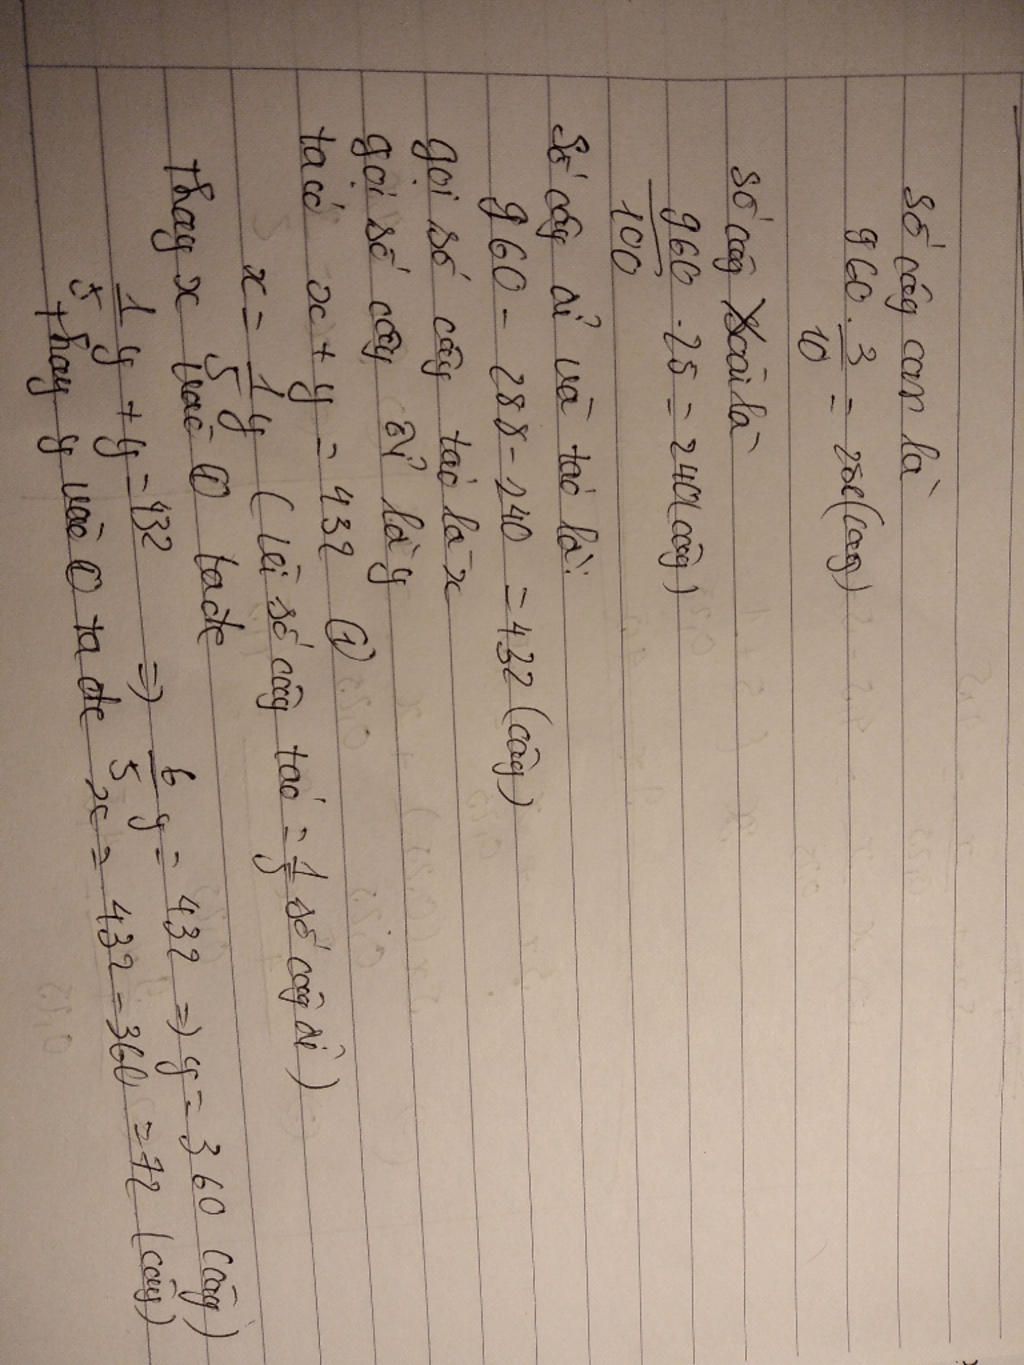 Số cây cam là
960 . 3/10 = 288 (cây)
Số cây Xoài là
960 . 25/100 = 240 (cây)
Số cây ổi và táo là:
960 - 288 - 240 = 432 (cây)
gọi số cây táo là x
gọi số cây ổi là y
ta có x + y = 432 (1)
x = 1/5 y (Vì số cây táo = 1/5 số cây ổi)
thay x vào (1) ta đc
1/5 y + y = 432 => 6/5 y = 432 => y = 360 (cây)
thay y vào (1) ta đc x = 432 - 360 = 72 (cây)